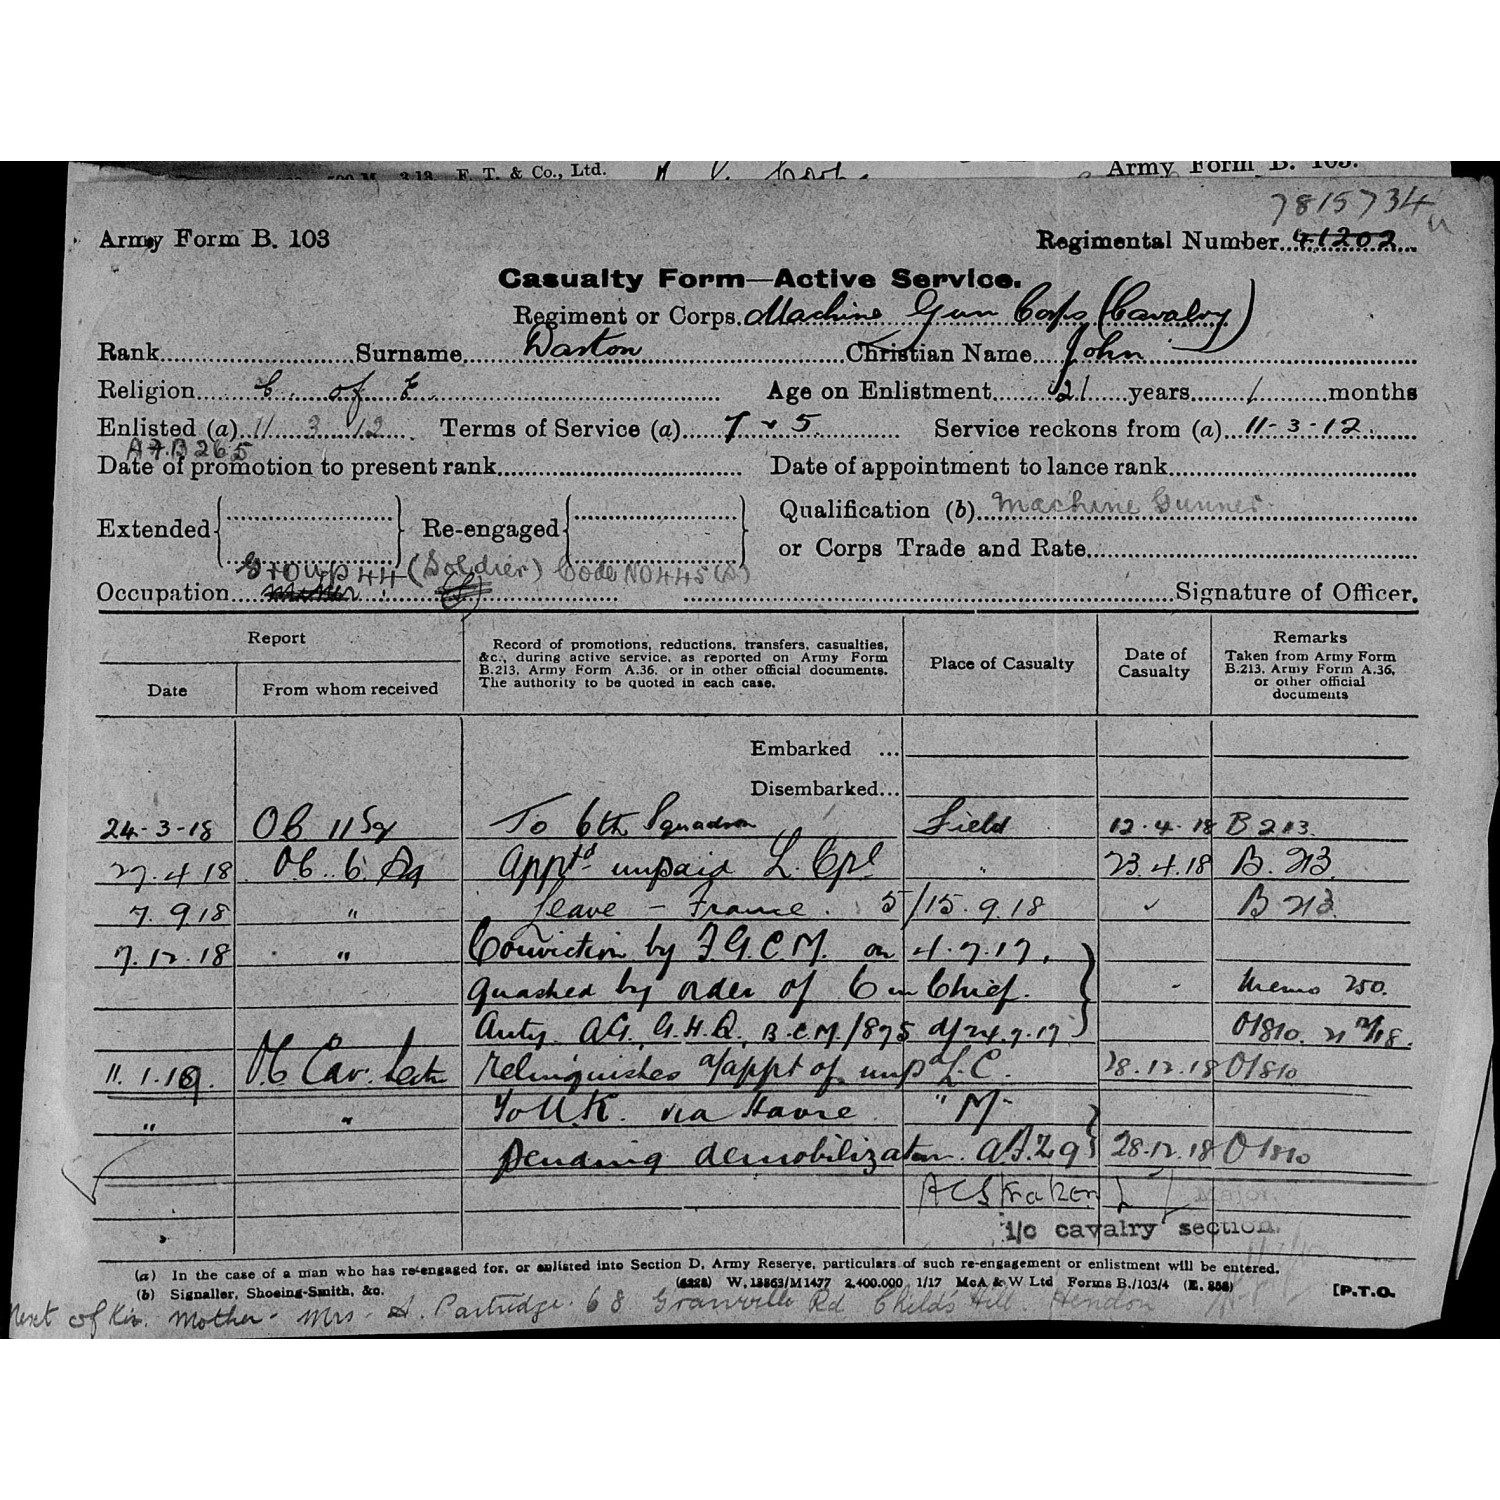 F. T. & Co., Ltd.
Army Form B. 103.
7815734
Army Form B. 103
Regimental Number 41202
Casualty Form—Active Service.
Regiment or Corps Machine Gun Corps (Cavalry)
Rank Surname Darton Christian Name John
Religion C. of E. Age on Enlistment 21 years 1 months
Enlisted (a) 11 3 12 Terms of Service (a) 7 & 5 Service reckons from (a) 11-3-12.
A.F.B 265
Date of promotion to present rank Date of appointment to lance rank
Qualification (b) Machine Gunner
Extended Re-engaged
or Corps Trade and Rate
Group 44 (Soldier) Code No 445 (S)
Occupation Signature of Officer.
Report
Date From whom received
Record of promotions, reductions, transfers, casualties, &c., during active service, as reported on Army Form B.213, Army Form A.36, or in other official documents. The authority to be quoted in each case.
Place of Casualty
Date of Casualty
Remarks
Taken from Army Form B.213, Army Form A.36, or other official documents
Embarked ...
Disembarked...
24-3-18 OC 11 Sq To 6th Squadron Field 12.4.18 B 213.
27.4.18 OC. 6. Sq Apptd unpaid L. Cpl " 23.4.18 B. 213.
7.9.18 " Leave - France. 5/15.9.18 B 213.
7.12.18 " Conviction by F.G.C.M. on 4.7.17.
quashed by order of C in Chief. Memo 250.
Auty A.G. G.H.Q. B.C.M/1875 d/24.7.17 O1810.
11.1.19. OC Cav. Sectn relinquishes a/appt of unp L.C. 28.12.18 O1810
" " To U.K. via Havre
pending demobilization. A.F.Z 9 28.12.18 O1810
Major.
i/c cavalry section.
(a) In the case of a man who has re-engaged for, or enlisted into Section D, Army Reserve, particulars of such re-engagement or enlistment will be entered.
(b) Signaller, Shoeing-Smith, &c. W. 13863/M1477 2,400.000 1/17 McA & W Ltd Forms B./103/4 [P.T.O.
Next of Kin. Mother - Mrs. A. Partridge. 68 Granville Rd Childs Hill. Hendon